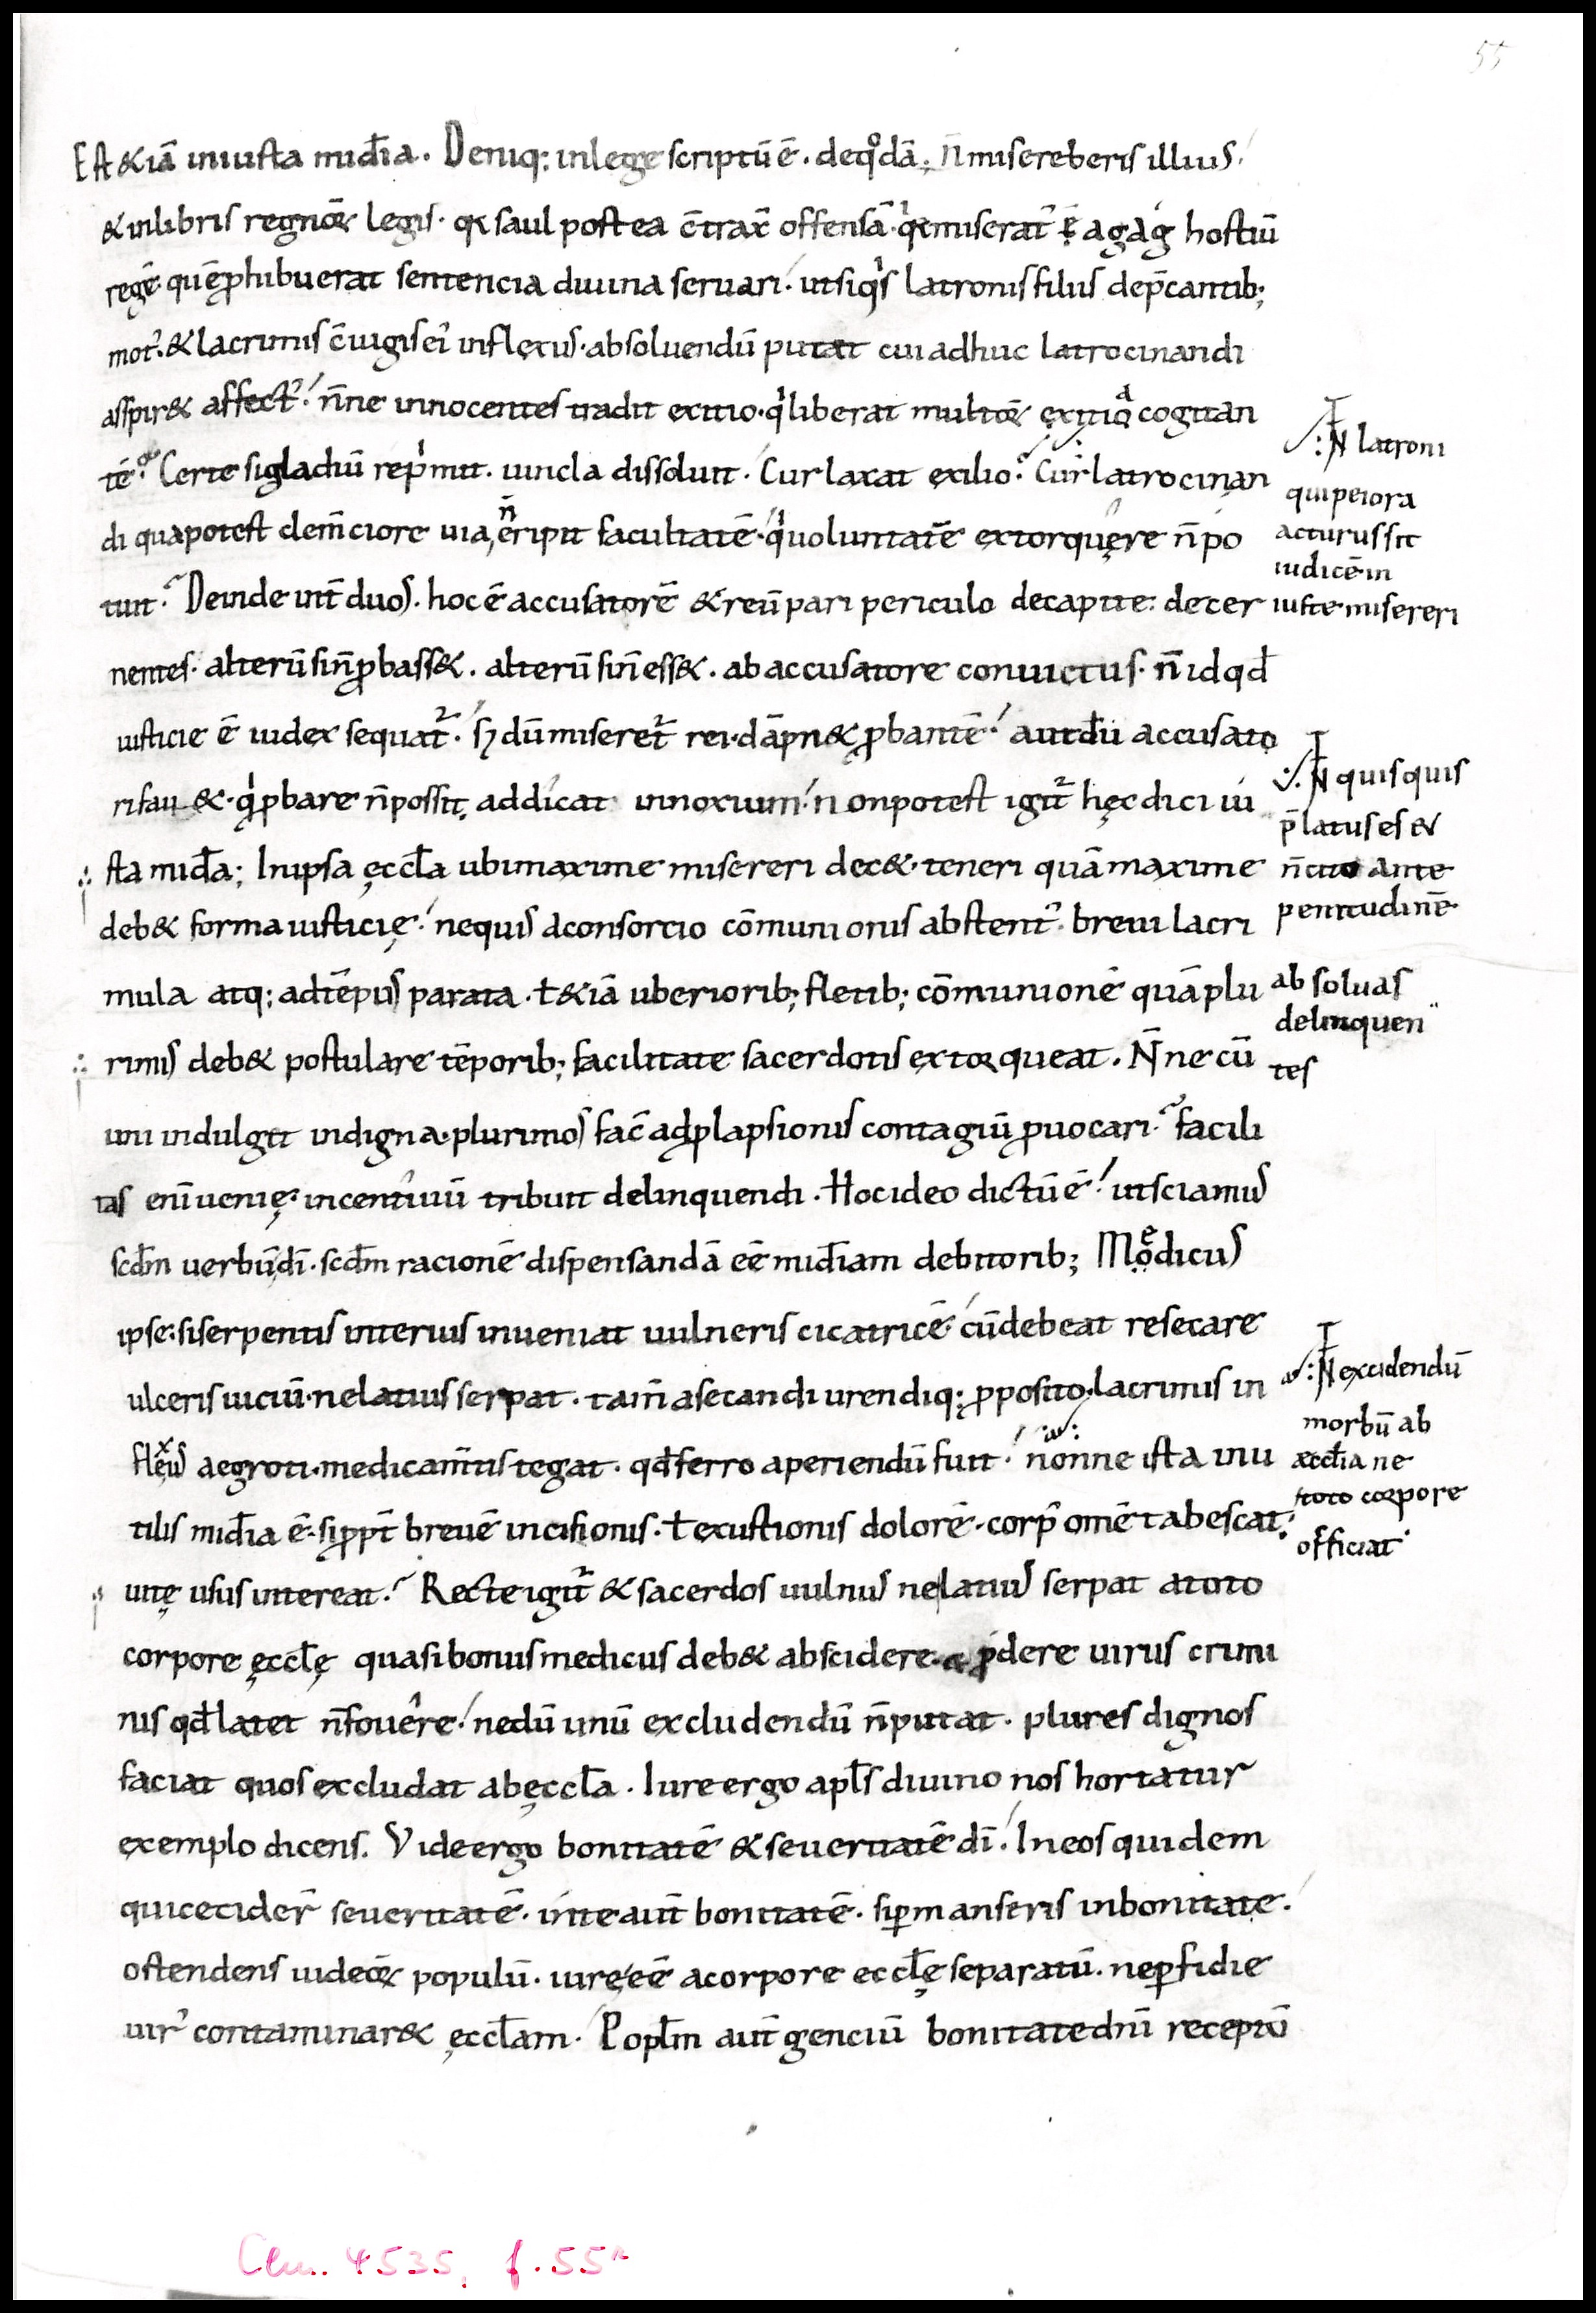 55
Est &iā iniusta mid̄ia. Deniq; inlege scriptū ē. deqͦdā; n̄ misereberis illius.
& inlibris regnoꝝ legis. qꝛ saul postea c̄trax̄ offensā. qͥ miserat᾽ ē agag hostiū
regē. quē ꝓhibuerat sentencia diuina seruari. ut siqͥs latronis filiis dep̄cantib;
mot᾽. & lacrimis c̄iugis ei᾽ inflexus. absoluendū putat cui adhuc latrocinandi
asspir& affect᾽. n̄ne innocentes tradit exitio. qͥ liberat multoꝝ exitia cogitan
tē. Certe si gladiū rep̍mit. uincla dissoluit. Cur laxat exilio. Cur latrocinan
di qua potest clem̄ciore uia, n̄ eripit facultatē. qͥ uoluntatē extorquere n̄ po
tuit. Deinde int̄ duos. hoc ē accusatorē & reū pari periculo decapite. decer
nentes. alterū si n̄ ꝓbass&. alterū si n̄ ess&. ab accusatore conuictus. n̄ id qd̄
iusticie ē iudex sequat᷑. sꝫ dū miseret᷑ rei. dāpn& ꝓbantē. aut dū accusato
ri fau&. qͥ ꝓbare n̄ possit, addicat innoxium. non potest igit᷑ hęc dici iu
sta mid̄a; In ipsa ęccl̄a ubi maxime misereri dec&. teneri quā maxime
deb& forma iusticię. nequis aconsorcio cōmunionis abstent᾽. breui lacri
mula atq; ad tēpus parata. ł &iā uberiorib; fletib; cōmunionē quā plu
rimis deb& postulare tēporib; facilitate sacerdotis extorqueat. N̄ne cū
uni indulget indigna. plurimos fac̄ ad ꝓlapsionis contagiū ꝓuocari. facili
tas enī uenię. incentiuū tribuit delinquendi. Hoc ideo dictū ē. ut sciamus
scd̄m uerbū dī. scd̄m racionē dispensandā eē mid̄iam debitorib; Medicus
ipse. si serpentis interius inueniat uulneris cicatricē. cū debeat resecare
ulceris uiciū. ne latius serpat. tam̄ asecandi urendiq; ꝓposito. lacrimis in
flexus aegroti. medicam̄tis tegat. qd̄ ferro aperiendū fuit. nonne ista inu
tilis mid̄ia ē. si ꝓpt̄ breuē incisionis. ł exustionis dolorē. corp᾽ omē tabescat.
uitę usus intereat. Recte igit᷑ & sacerdos uulnus ne latius serpat atoto
corpore ęccl̄ę quasi bonus medicus deb& abscidere. & ꝓdere uirus crimi
nis qd̄ latet n̄ fouere. nedū unū excludendū n̄ putat. plures dignos
faciat quos excludat ab ęccl̄a. Iure ergo apl̄s diuino nos hortatur
exemplo dicens. Vide ergo bonitatē & seueritatē dī. In eos quidem
qui cecider̄ seueritatē. in te aut̄ bonitatē. si ꝑmanseris in bonitate.
ostendens iudeoꝝ populū. iure eē acorpore eccl̄ę separatū. ne ꝑfidie
uir᾽ contaminar& ęccl̄am. Popl̄m aut̄ genciū bonitate dn̄i receptū
N latroni
qui peiora
acturus sit
iudicē in
iuste misereri
N quisquis
p̄latus es &
n̄ cito ante
penitudinē
absoluas
delinquen
tes
N excidendū
morbū ab
æccl̄ia ne
toto corpore
officiat
Clm. 4535, f. 55r